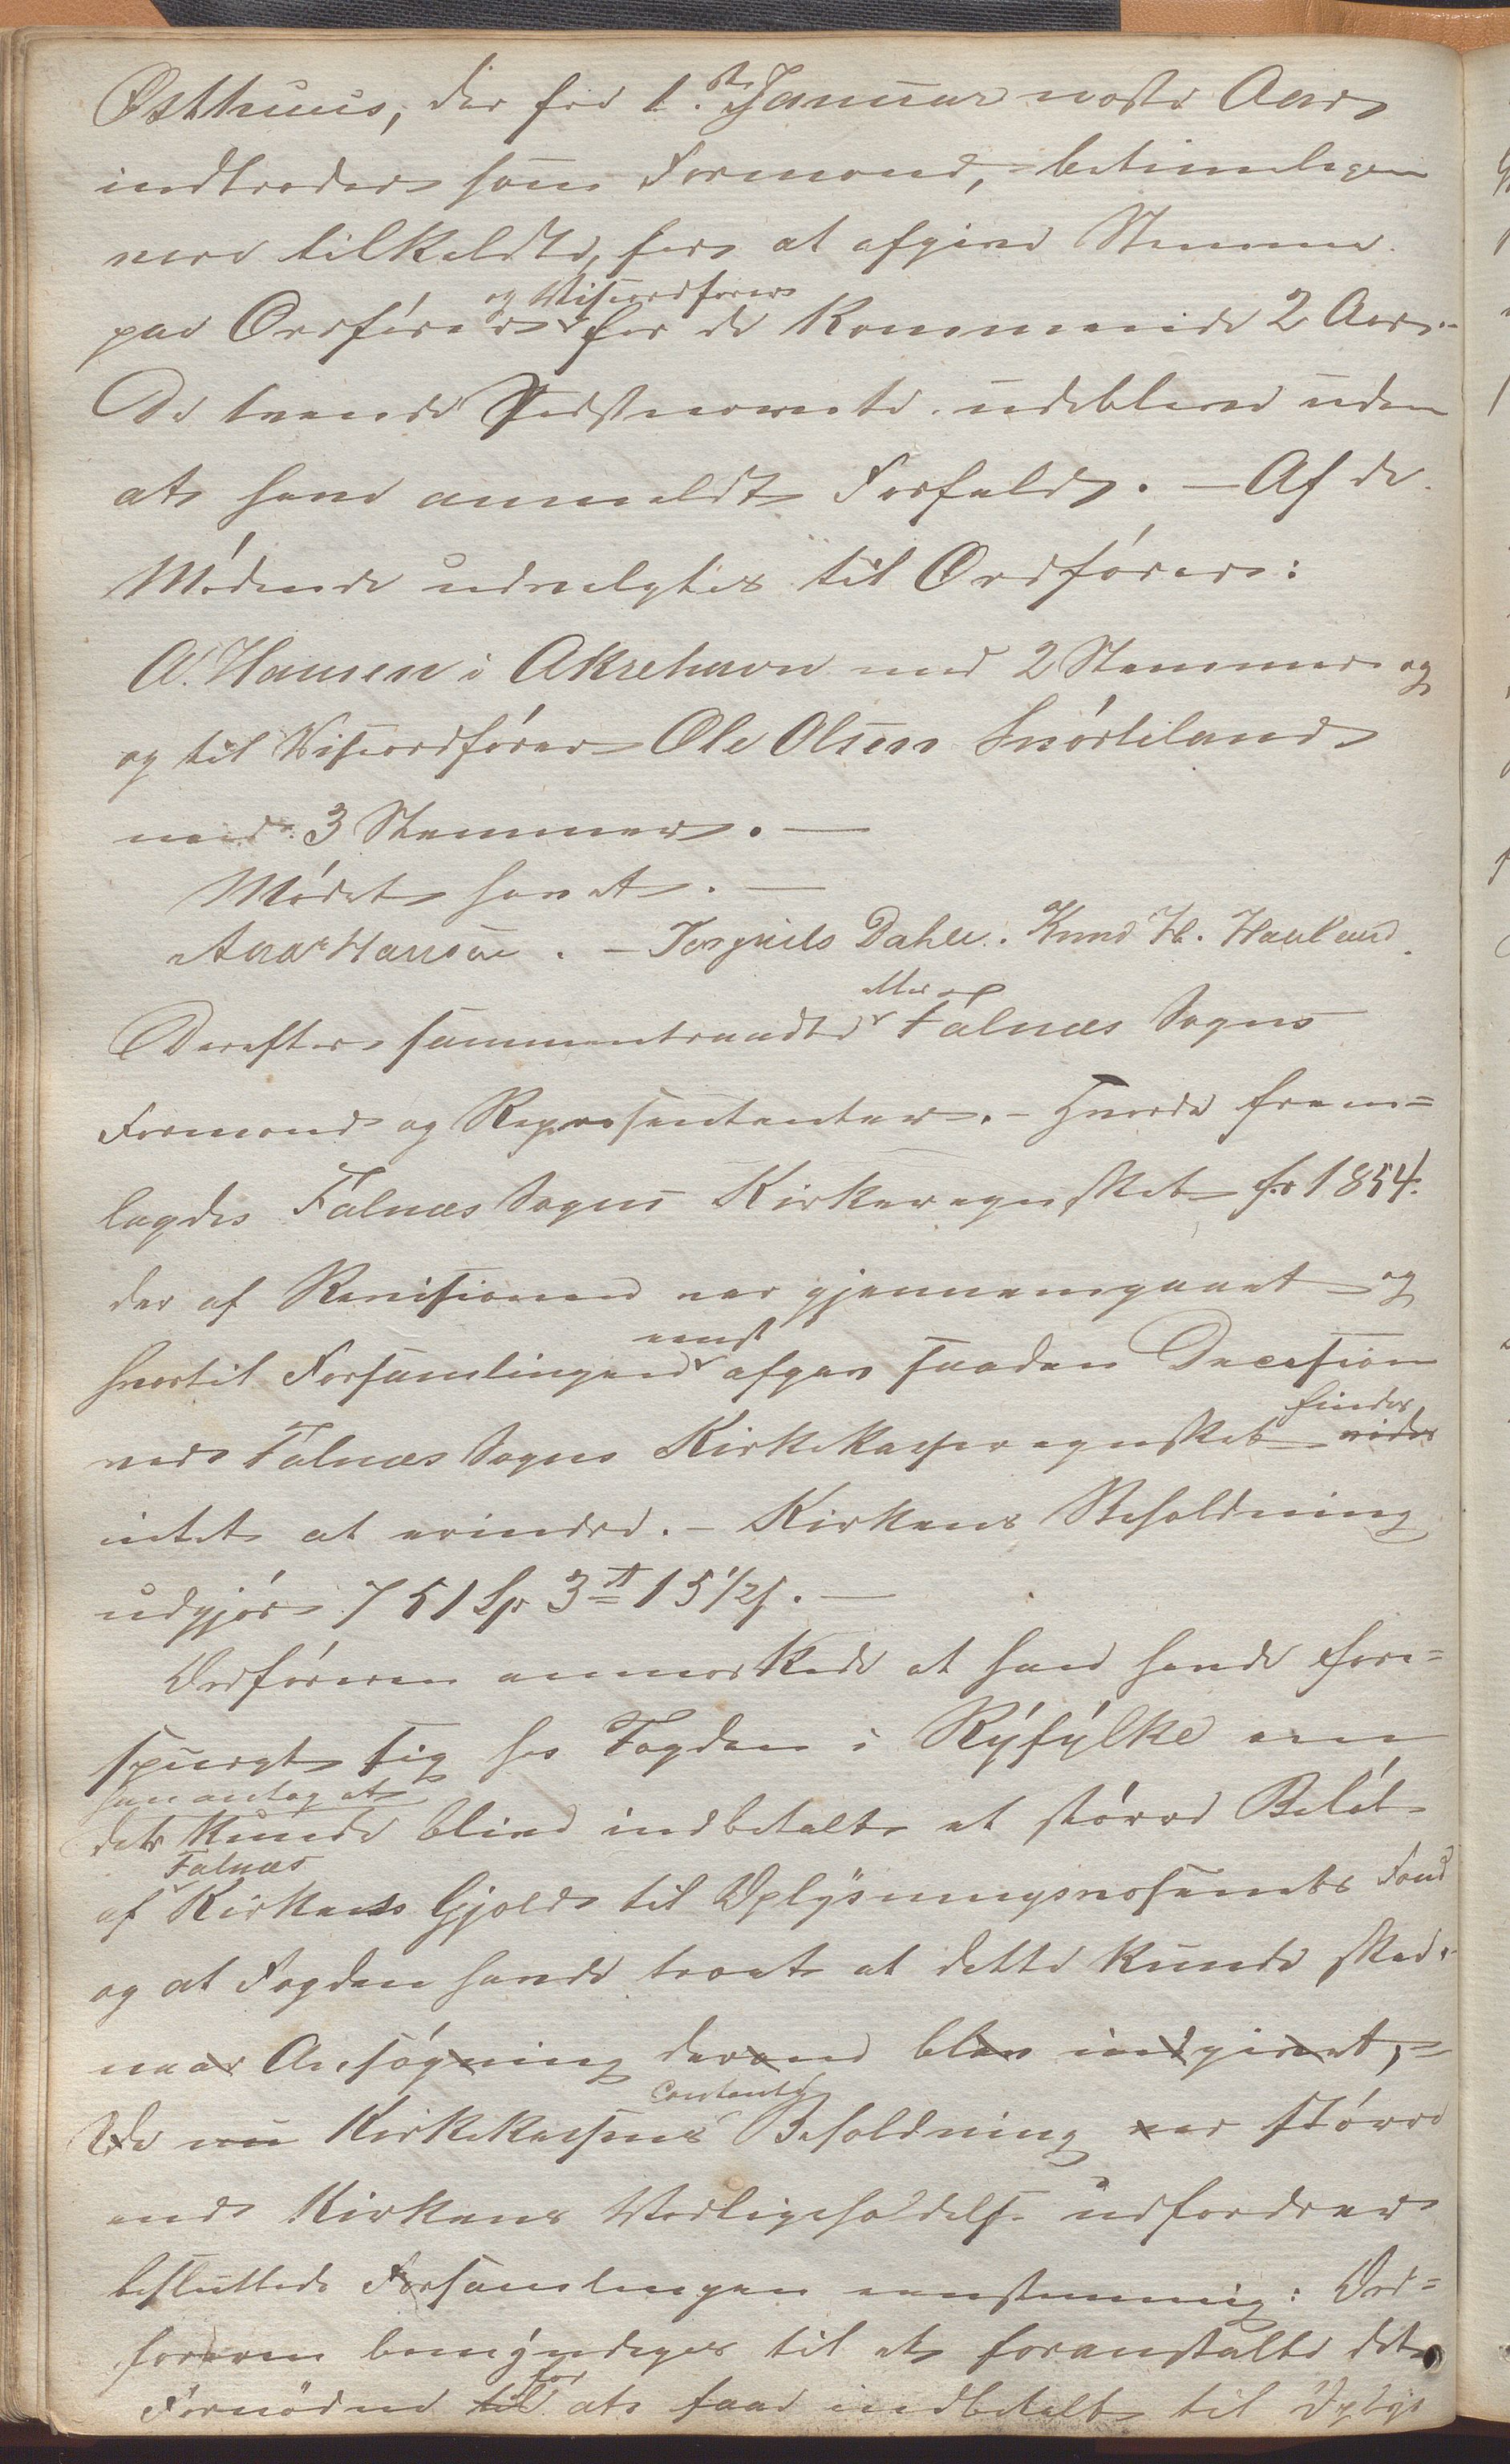 Østhuus, der fra 1.ste Januar næste Aar
indtræder som Formænd, betimeligen
være tilkaldte, for at afgive Stemme
paa Ordfører og Viseordfører for de kommende 2 Aar.-
De tvende Sidstnævnte udebleve uden
at have anmeldt Forfald. — Af de
Mødende udvalgtes til Ordfører:
A. Hansen i Akrehavn med 2 Stemmer og
og til Viseordfører Ole Olsen Snørteland
med 3 Stemmer. —
Mødet hævet. —
Hansen. — Torgrils Dahle. Knud H. Haukaas.
Derefter sammentraadte Falnæs Sogns
Formænd og Repræsentanter. - Hvorda frem=
lagdes Falnæs Sogns Kirkeregnskab for 1854.
der af Revisionen var gjennemgaaet og
hvortil Forsamlingen eenst afgav saadan Decesion
ved Falnæs Sogns Kirkekasseregnskab findes
intet at erindre. - Kirkens Beholdning
udgjør 751 Sp 3 # 15 1/2 s. —
Ordføreren anmærkede at han havde fore=
spurgt sig hos Fogden i Ryfylke om
han antog at
det kunde blive indbetalt et større Beløb
af Falnæs Kirkens Gjæld til Oplysningsvæsenets Fond
og at Fogden havde troet at dette kunde skee.
naar Ansøgning derom blev indgivet,=
Da nu Kirkekassens Contante Beholdning var større
end Kirkens Vedligeholdelse udfordrer
besluttede Forsamlingen eenstemmig: Ord=
føreren bemyndiges til at foranstalte det
Fornødne til for at faae indbetalt til Oplys